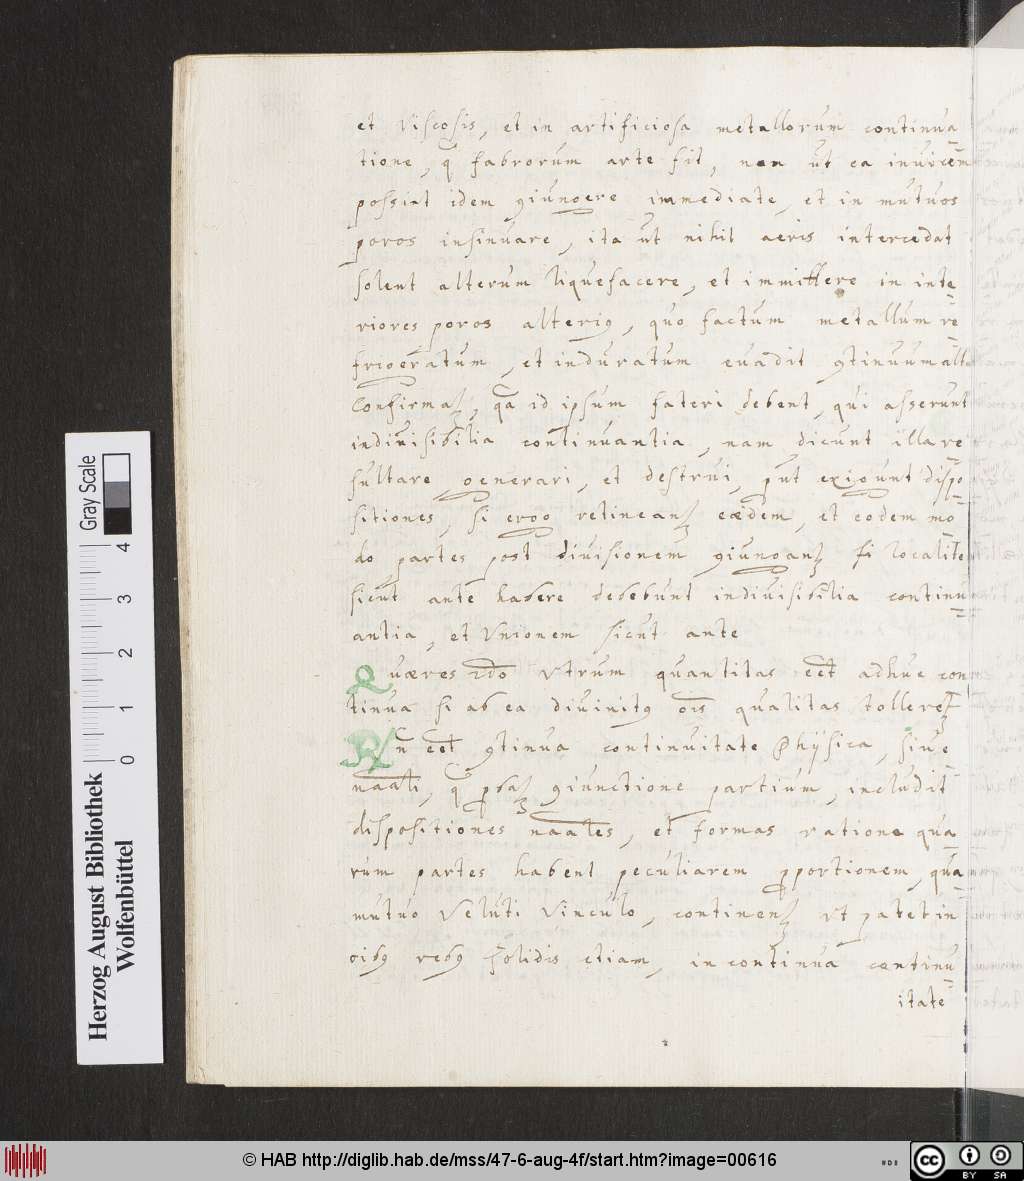 et viscosis, et in artificiosa metallorum continua
tione, q̃ fabrorum arte fit, nam ut ea inuicem
possint idem ꝯiungere immediate, et in mutuos
poros insinuare, ita ut nihil aeris intercedat
solent alterum liquefacere, et immittere in inte
riores poros alteriꝯ, quo factum metallum re
frigeratum, et induratum euadit ꝯtinuum alt
Confirmaꝫ, qa id ipsum fateri debent, qui asserunt
indiuisibilia continuantia, nam dicunt illa re
sultare generari, et destrui, put exigunt dispo
sitiones, si ergo retineanꝫ eædem, et eodem mo
do partes post diuisionem ꝯiunganꝫ
sicut ante habere debebunt indiuisibilia continu
antia, et Vnionem sicut ante
Quæres 2do Vtrum quantitas eet̃ adhuc con
tinua si ab ea diuinitꝯ ois̃ qualitas tolleretꝫ
Rñ eet̃ ꝯtinua continuitate Phÿsica, siue
naali, q̃ ꝓbaꝫ ꝯiunctione partium, includit
dispositiones naales, et formas ratione qua
rum partes habent peculiarem ꝓportionem, qua
mutuo Veluti Vinculo, continenꝫ vt patet in
oibꝯ rebꝯ solidis etiam, in continua continu
itate
Gray Scale
0 1 2 3 4
Herzog August Bibliothek
Wolfenbüttel
© HAB http://diglib.hab.de/mss/47-6-aug-4f/start.htm?image=00616
cc BY SA